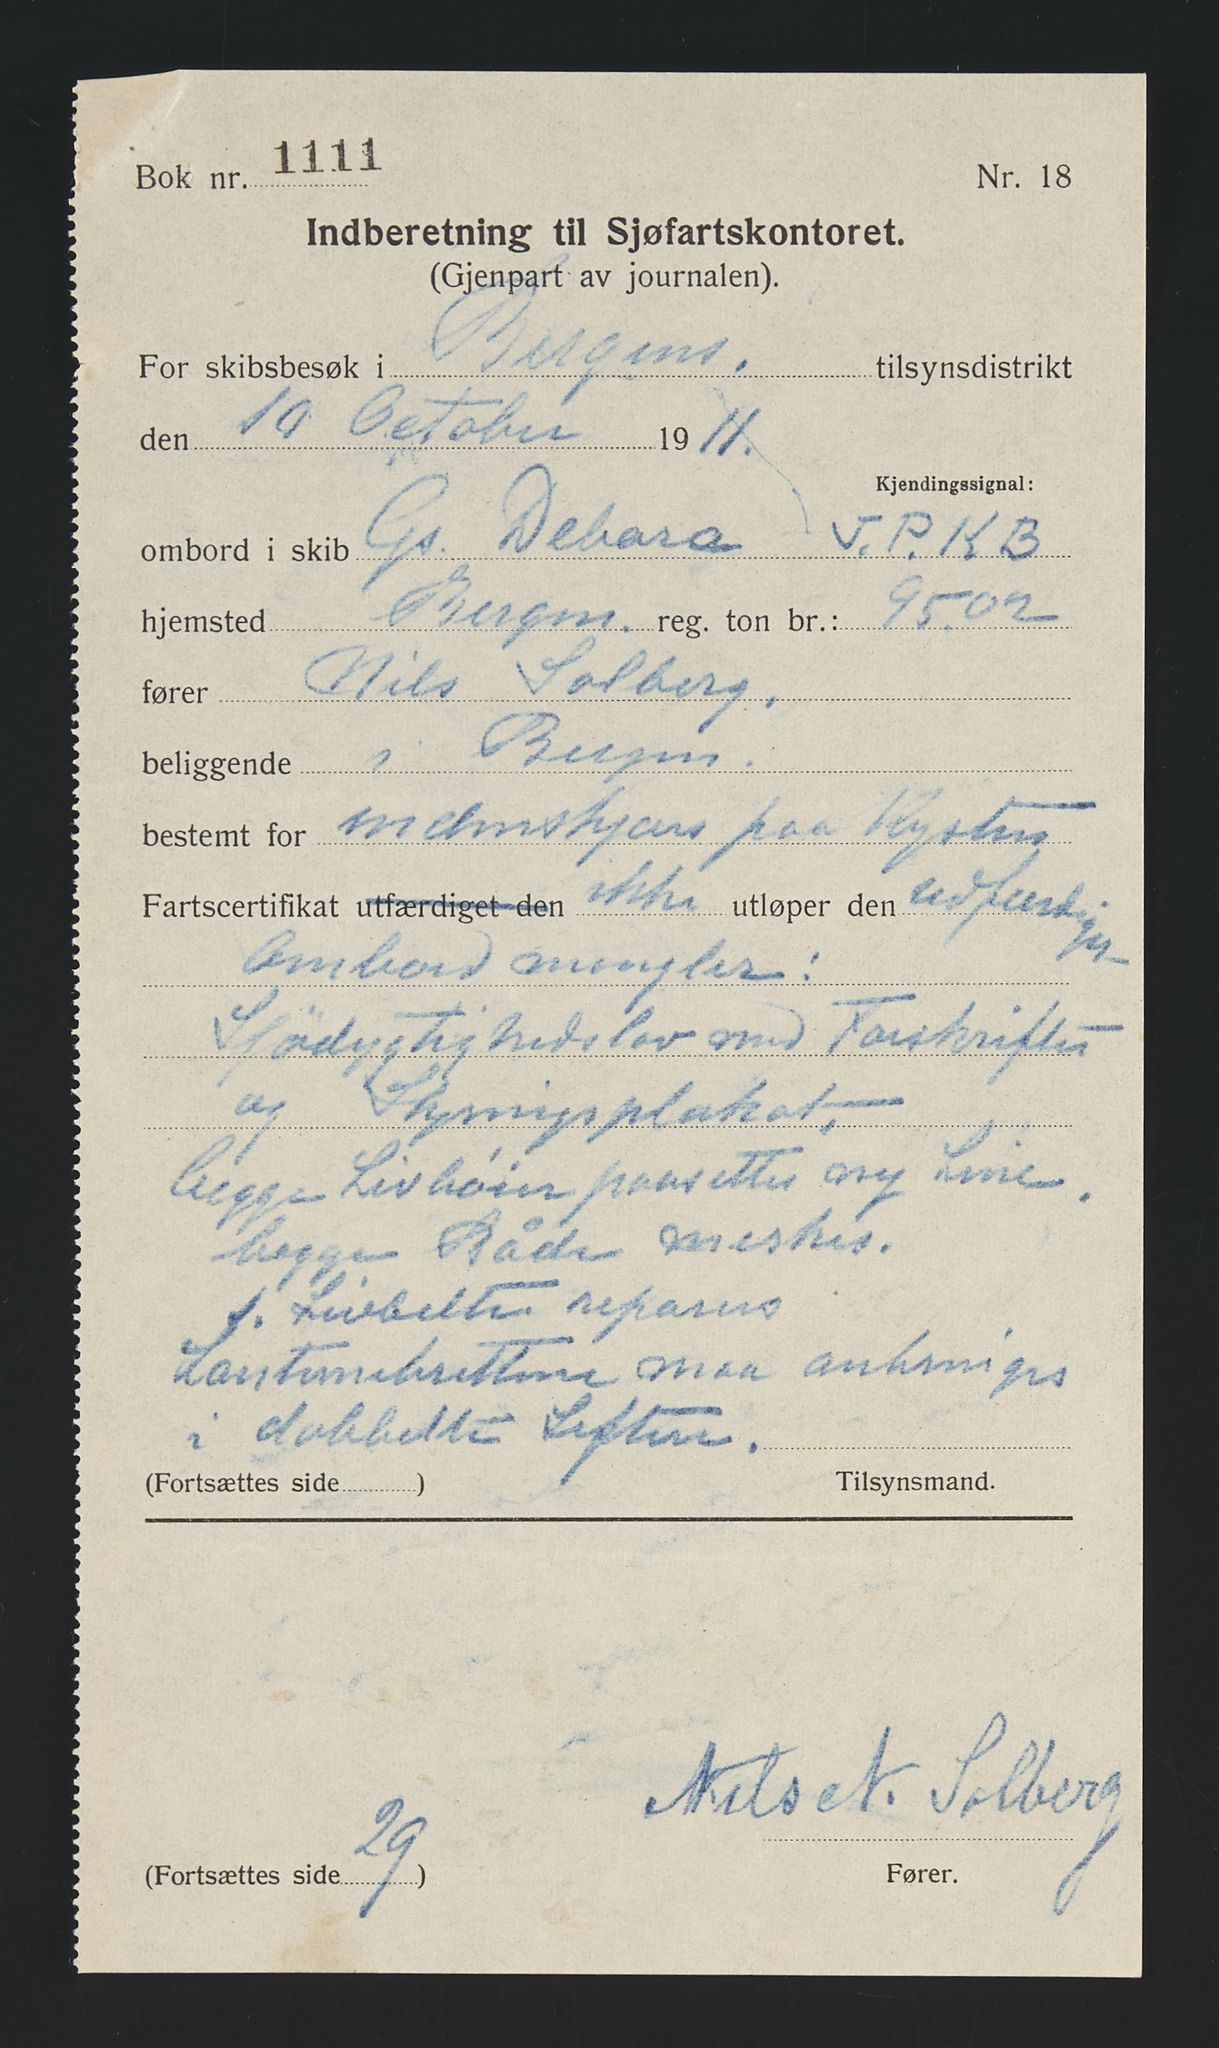 Bok nr. 1111 Nr. 18
Indberetning til Sjøfartskontoret.
(Gjenpart av journalen).
For skibsbesøk i Bergens. tilsynsdistrikt
den 10 October 1911.
Kjendingssignal:
ombord i skib Gs. Debora J.P.K B
hjemsted Bergen. reg. ton br.: 95.02
fører Nils Solberg.
beliggende i Bergen.
bestemt for indenskjærs paa Kysten
Fartscertifikat utfærdiget den ikke utløper den udfærdiget
Ombord mangler:
Sjödygtighedslov med Forskrifter
og Skyvnigsplakat,
begge Livbøier paasettes ny Line.
begge Både merkes.
1. Livbelte repareres
Lanternebrettene maa anbringes
i dobbelte Løftere.
(Fortsættes side ) Tilsynsmand.
Nils N. Solberg
(Fortsættes side 29) Fører.